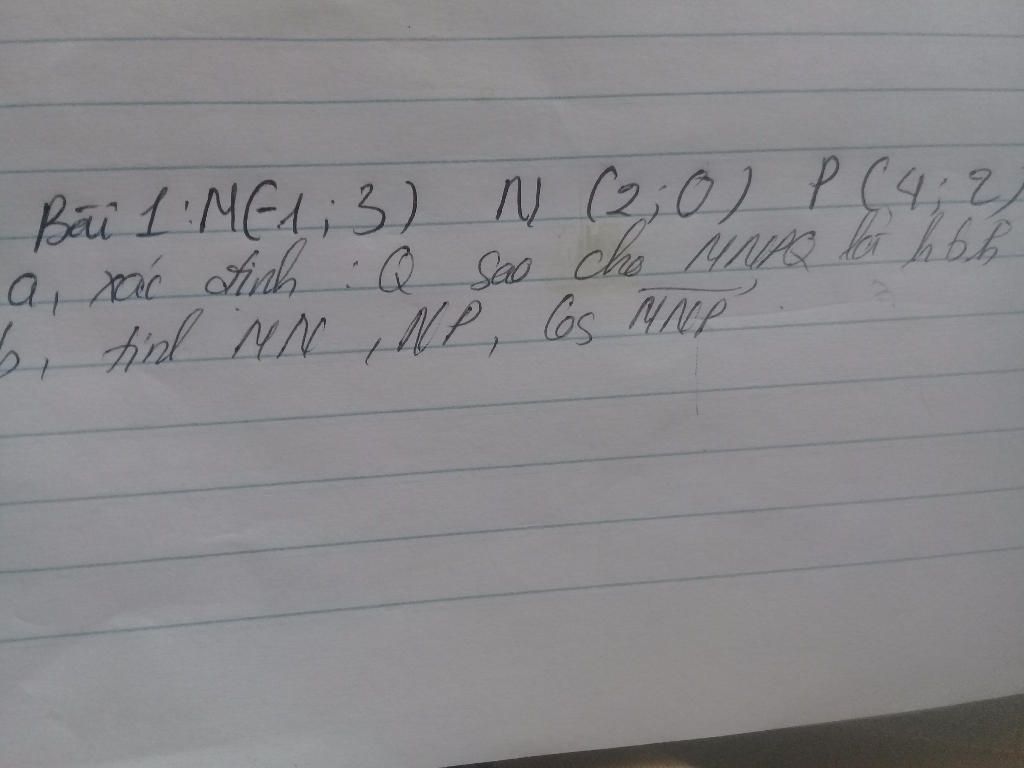 Bài 1: M(-1; 3) N (2; 0) P (4; 2)
a, xác định: Q sao cho MNPQ là hbh
b, tính MN, NP, Cos MNP